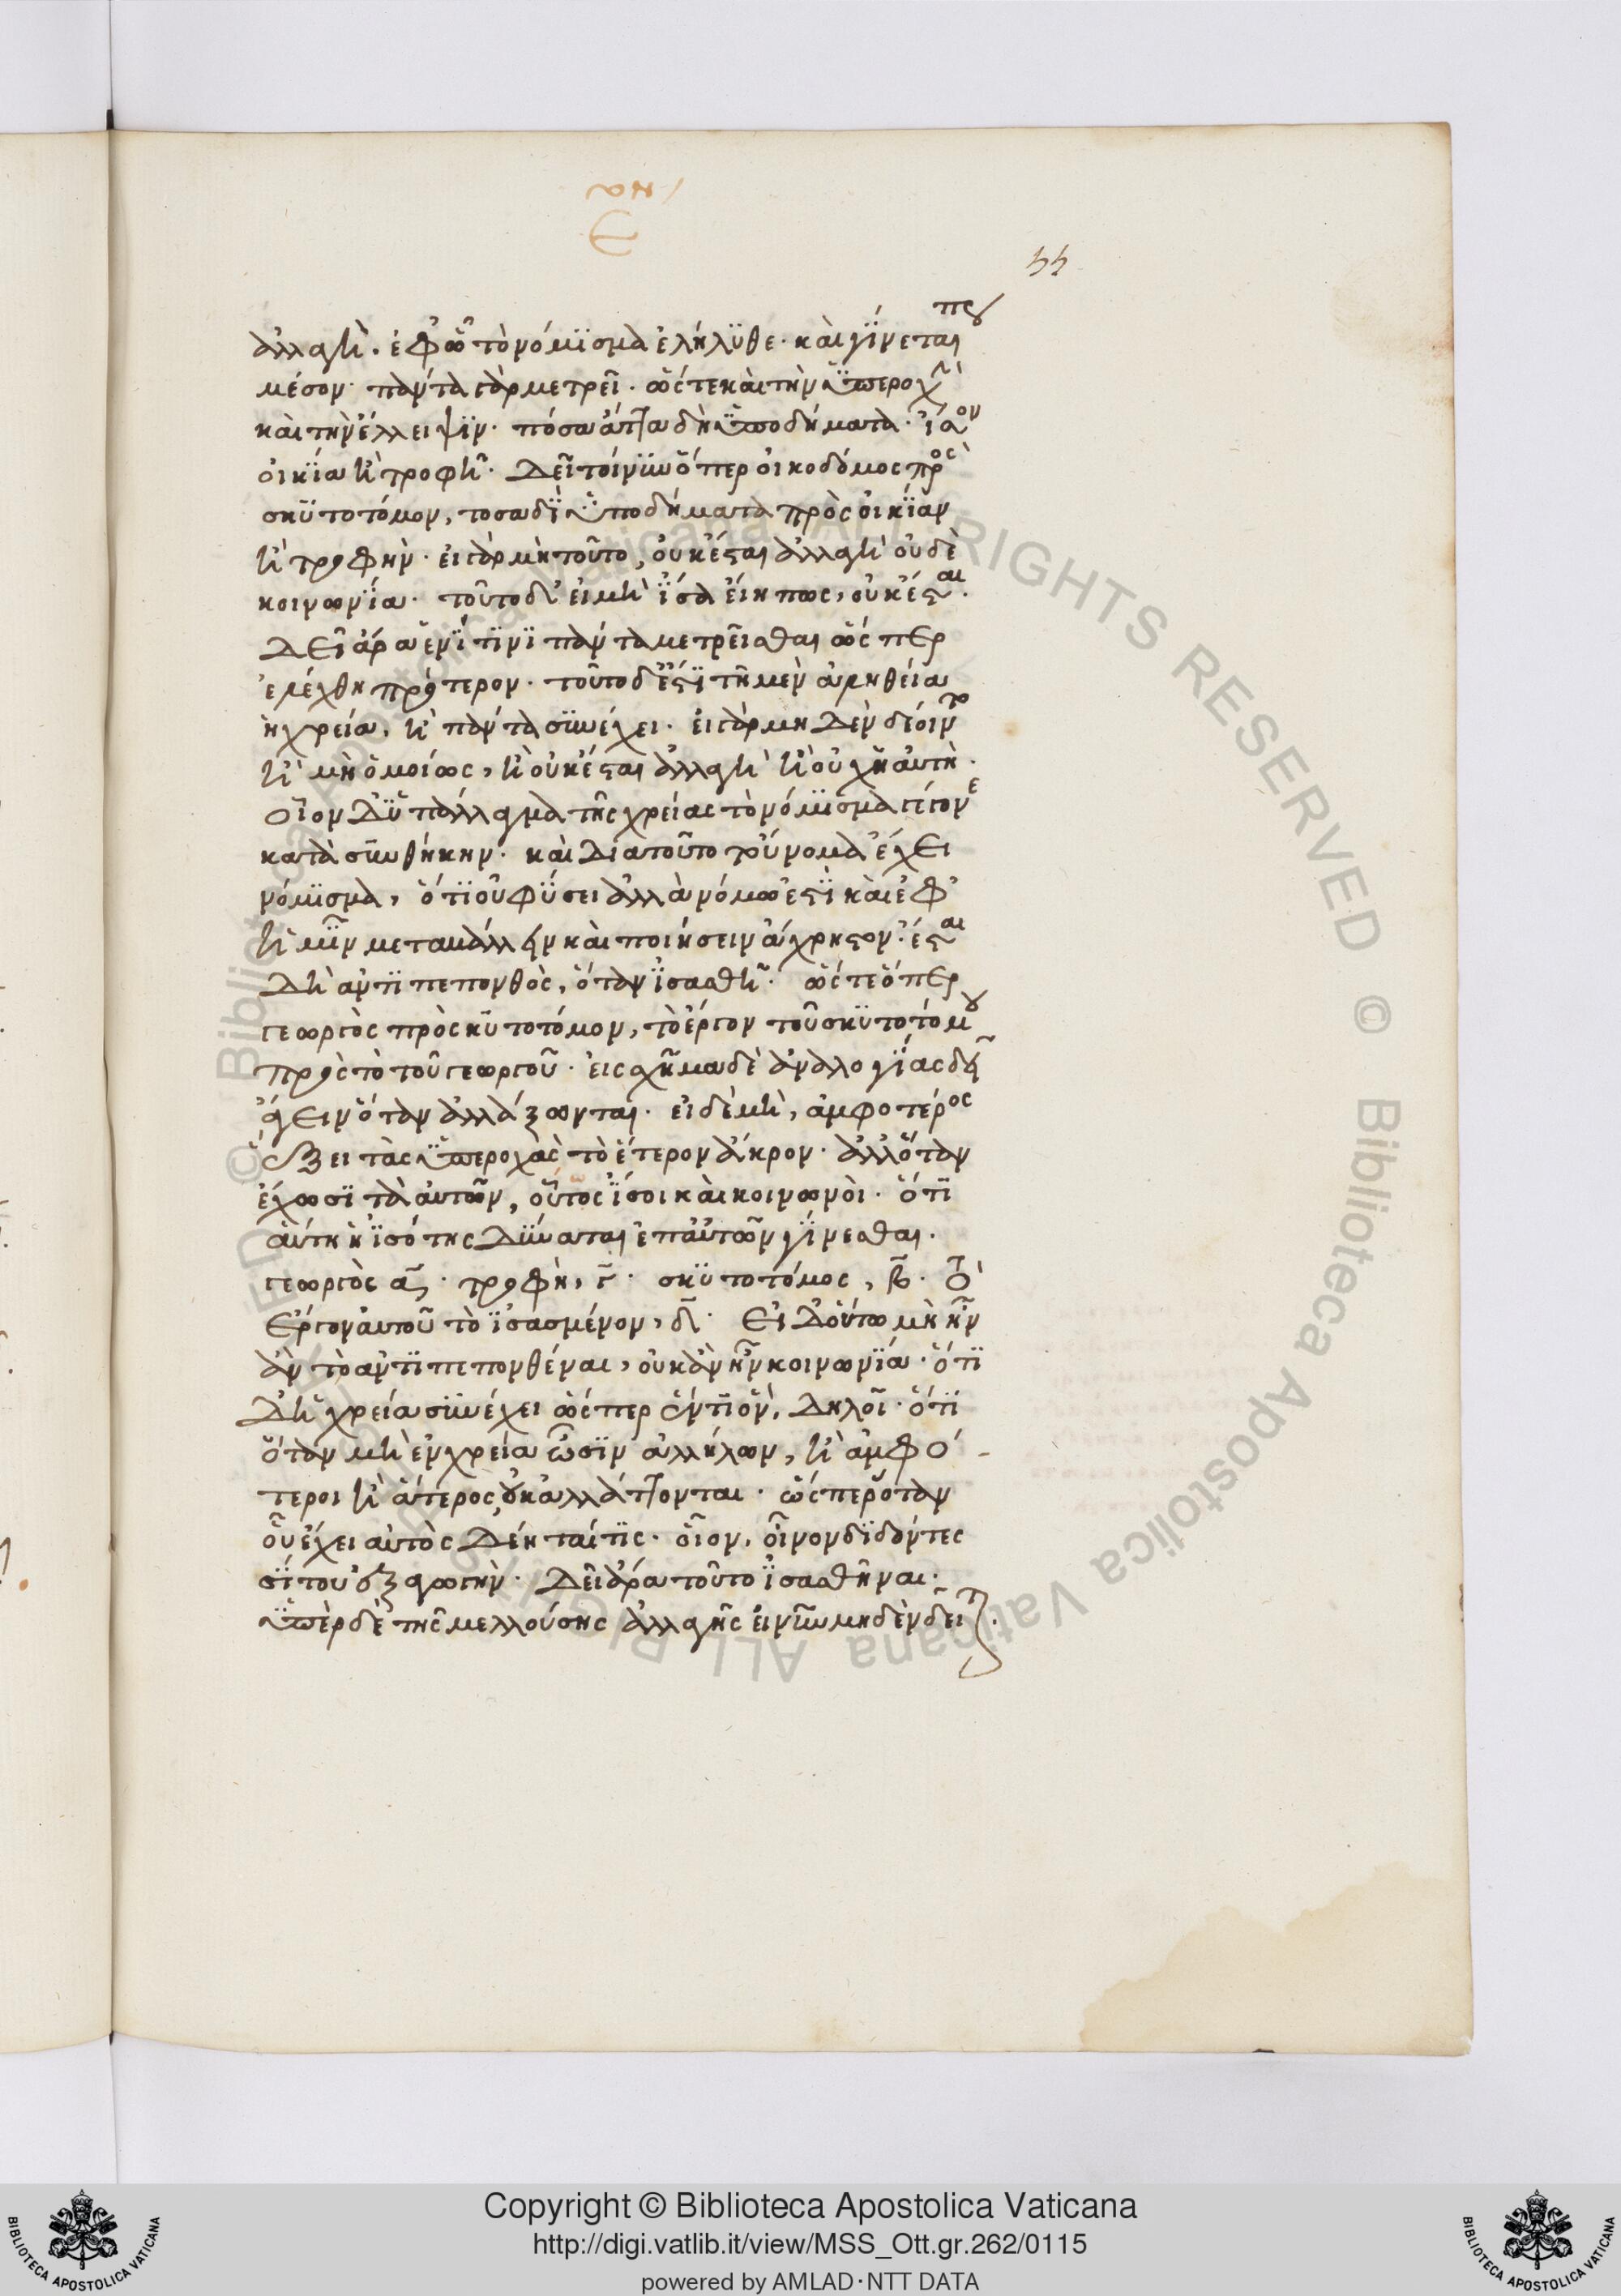 που
ἀλλαγή. ἐφ' ᾧ τὸ νόμϊσμα ἐλήλϋθε. καὶ γϊνεταί
μέσον. πάντα γὰρ μετρεῖ. ὥστε καὶ τὴν ὑπεροχὴ
καὶ τὴν ἔλλειψϊν. πόσα ἄττα δὴ ὑποδήματα. ἴσον
οἰκία ἢ τροφῆ. Δεῖ τοίνϋν ὅπερ οἰκοδόμος πρὸς
σκϋτοτόμον, τοσαδὶ ὑποδήματα πρὸς οἰκίαν
ἢ τροφὴν. εἰ γὰρ μὴ τοῦτο, οὐκ ἔσται ἀλλαγὴ οὐδὲ
κοινωνία. τοῦτο δ' εἰ μὴ ἴσα εἴη πως, οὐκ ἔσται.
Δεῖ ἄρα ἑνί τϊνϊ πάντα μετρεῖσθαι ὥσπερ
ἐλέχθη πρότερον. τοῦτο δ' ἐστὶ τῇ μὲν ἀληθεία
ἡ χρεία, ἣ πάντα σϋνέχει. εἰ γὰρ μηδὲν δέοιντο
ἢ μὴ ὁμοίως, ἢ οὐκ ἔσται ἀλλαγὴ ἢ οὐχ ἡ αὐτὴ.
οἷον δ' ὑπάλλαγμα τῆς χρείας τὸ νόμϊσμα γέγονε
κατὰ σϋνθήκην. καὶ διατοῦτο τοὔνομα ἔχει
νόμϊσμα, ὅτϊ οὐ φϋσει ἀλλὰ νόμω ἐστὶ καὶ ἐφ'
ἡμῖν μεταβάλλειν καὶ ποιήσειν ἄχρηστον. ἔσται
Δὴ ἀντϊπεπονθὸς, ὅταν ἰσασθῆ. ὥστε ὅπερ
γεωργὸς πρὸς κϋτοτόμον, τὸ ἔργον τοῦ σκϋτοτόμου
πρὸς τὸ τοῦ γεωργοῦ. εἰς σχῆμα δὲ ἀναλογίας δεῖ
ἄγειν ὅταν ἀλλάξωνται. εἰ δὲ μὴ, ἀμφοτέρας
ἕξει τὰς ὑπεροχὰς τὸ ἕτερον ἄκρον. ἀλλ' ὅταν
ἔχωσϊ τὰ αὑτῶν, οὕτως ἴσοι καὶ κοινωνοὶ. ὅτϊ
αὕτη ἡ ἰσότης δϋναται ἐπ' αὐτῶν γίνεσθαι.
γεωργὸς α. τροφὴ, γ. σκϋτοτόμος, β. τὸ
ἔργον αὐτοῦ τὸ ἰσασμένον, δ. Εἰ δ' οὕτω μὴ ἦν
ἂν τὸ ἀντϊπεπονθέναι, οὐκ ἂν ἦν κοινωνία. ὅτϊ
Δ' ἡ χρεία σϋνέχει ὥσπερ ἕν τϊ ὂν, δηλοῖ. ὅτϊ
ὅταν μὴ ἐν χρεία ὦσϊν ἀλλήλων, ἢ ἀμφό-
τεροι ἢ ἅτερος, οὐκ ἀλλάττονται. ὥσπερ ὅταν
οὗ ἔχει αὐτὸς δέηταί τϊς. οἷον, οἴνον δϊδόντες
σίτου ἐξαγωγὴν. Δεῖ ἄρα τοῦτο ἰσασθῆναι.
ὑπὲρ δὲ τῆς μελλούσης ἀλλαγῆς εἰ νῦν μηδὲν δεῖται.
Copyright © Biblioteca Apostolica Vaticana
http://digi.vatlib.it/view/MSS_Ott.gr.262/0115
powered by AMLAD·NTT DATA
BIBLIOTECA APOSTOLICA VATICANA
BIBLIOTECA APOSTOLICA VATICANA
© Biblioteca Apostolica Vaticana ALL RIGHTS RESERVED © Biblioteca Apostolica Vaticana ALL RIGHTS RESERVED